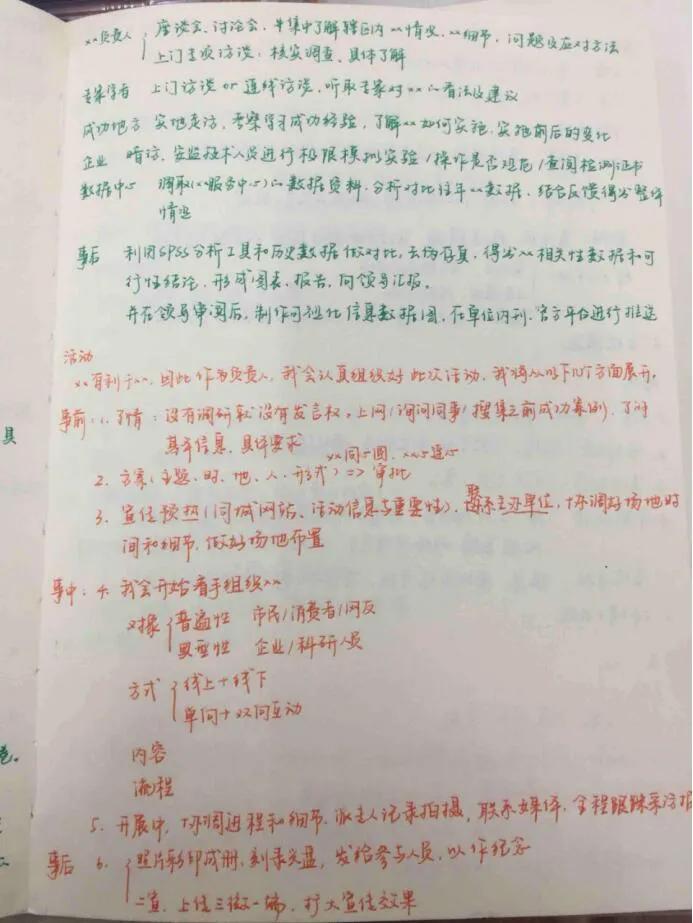 xx负责人 { 座谈会、讨论会,集中了解辖区内xx情况、xx细节,问题及应对方法
上门专项访谈,核实调查、具体了解
专家学者 上门访谈 or 连线访谈,听取专家对xx的看法及建议
成功地方 实地走访,考察学习成功经验,了解xx如何实施,实施前后的变化
企业 暗访,安监技术人员进行极限模拟实验/操作是否规范/查阅检测证书
数据中心 调取(xx服务中心)的数据资料,分析对比往年xx数据,结合反馈得出整体
情况
事后 利用SPSS分析工具和历史数据做对比,去伪存真,得出xx相关性数据和可
行性结论,形成图表、报告,向领导汇报。
并在领导审阅后,制作可视化信息数据图,在单位内刊、官方平台进行推送
活动
xx有利于xx,因此作为负责人,我会认真组织好此次活动,我将从以下几个方面展开。
事前:1.了情:没有调研就没有发言权。上网/询问同事/搜集之前成功案例,了解
基本信息、具体要求
xx同一圆,xx与连心
2. 方案(主题、时、地、人、形式)=>审批
3. 宣传预热(同城网站、活动信息与重要性),联系主办单位,协调好场地时
间和细节,做好场地布置
事中:4.我会开始着手组织xx
对象 { 普遍性 市民/消费者/网友
典型性 企业/科研人员
方式 { 线上+线下
单向+双向互动
内容
流程
5. 开展中,协调进程和细节,派专人记录拍摄,联系媒体,全程跟踪采访报
事后 6. { 照片彩印成册,刻录光盘,发给参与人员,以作纪念
二宣,上传三微一端,扩大宣传效果
具